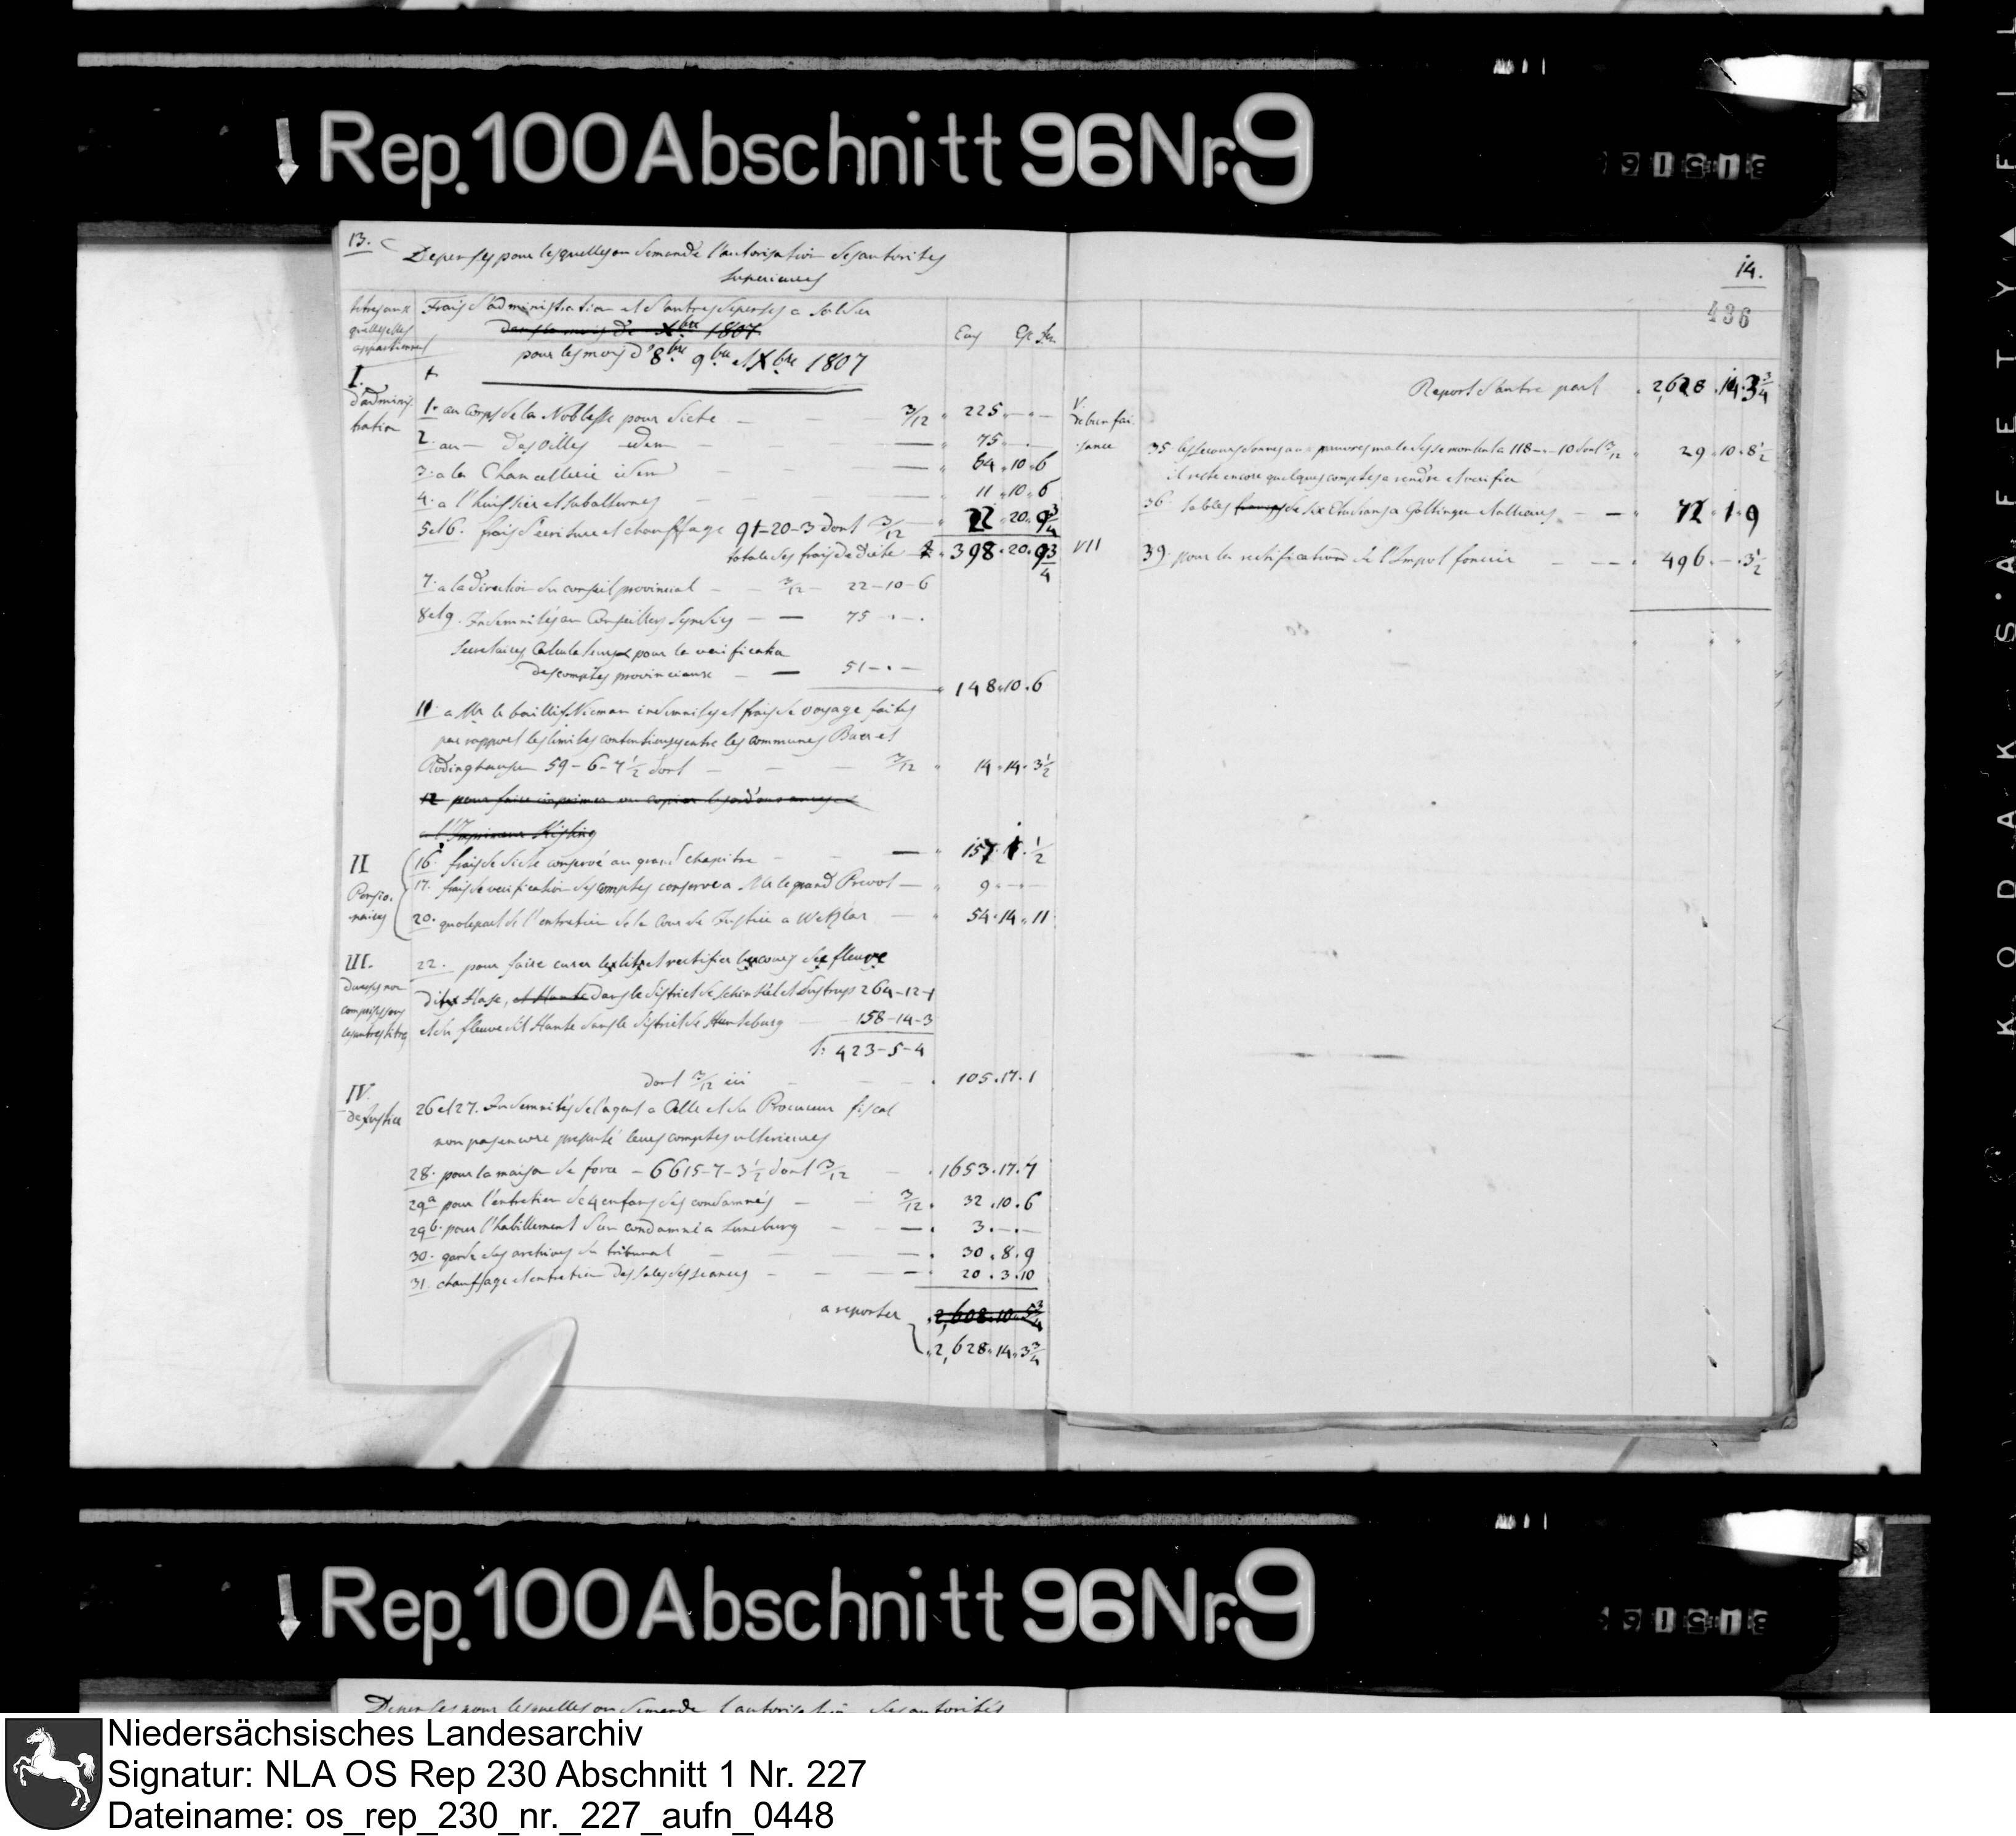 Rep. 100 Abschnitt 96 Nr. 9
13.
Depenses pour lesquelles on demande l'autorisation des autorites
superieures
titres aux
quelles elles
appartiennent
Frais d'administration et d'autres depenses a solder
dans le mois de Xbre 1807
pour les mois d'8bre 9bre et Xbre 1807
I.
d'adminis
tration
1. au corps de la Noblesse pour diete — 3/12 225 — —
2. au — des villes idem — 75 — —
3. a la Chancellerie idem — 64 . 10 . 6
4. a l'huissier et subalternes — 11 . 10 . 6
5 et 6. frais d'ecriture et chauffage 91-20-3 dont 3/12 — 22 . 20 . 9 3/4
totale des frais de diete 398 . 20 . 9 3/4
7. a la direction du conseil provincial — 3/12 — 22-10-6
8 et 9. Indemnités au Conseillers Syndics — 75 . — .
Secretaires Calculateurs pour la verification
des comptes provinciaux — 51 — . —
148 . 10 . 6
11 a Mr le baillif Nieman indemnites et frais de voyage faites
par rapport les limites contentieuses entre les communes Buer et
Rödinghausen 59-6-7 1/2 dont — 3/12 14 . 14 . 3 1/2
12 pour faire imprimer ou copier les ordonnances
a l'Imprimeur Kisling
II
Pensio.
naires
16. frais de diete conservé au grand chapitre — 157 . 1 . 1/2
17. frais de verification des comptes conserve a Mr le grand Prevot — 9 . — . —
20. quotepart de l'entretien de la Cour de Justice a Wetzlar — 54 . 14 . 11
III.
Diverses non
comprises sous
les autres titres
22. pour faire curer le lit et rectifier le cours de fleuve
dit Hase, et Hunte dans le district de Schinkel et Lustrup 264-12-1
et du fleuve dit Hunte dans le district de Hunteburg 158-14-3
S: 423-5-4
dont 3/12 ici — 105 . 17 . 1
IV.
de Justice
26 et 27. Indemnités de l'agent a Celle et du Procureur fiscal
non pas encore presenté leurs comptes ulterieures
28. pour la maison de force — 6615-7-3 1/2 dont 3/12 — 1653 . 17 . 7
29a pour l'entretien de 4 enfans des condamnés — 3/12 . 32 . 10 . 6
29b. pour l'habillement d'un condamné a Luneburg — 3 . — . —
30. garde des archives du tribunal — 30 . 8 . 9
31. chauffage et entretien des sales des seances — 20 . 3 . 10
a reporter 2,608 . 10 . 5 3/4
2,628 . 14 . 3 3/4
14.
436
Report d'autre part 2,628 . 14 . 3 3/4
V.
de bienfai.
sance
35. les secours donnes aux pauvres malades se montent a 118 — . — 10 dont 3/12 29 . 10 . 8 1/2
il reste encore quelques comptes a rendre et verifier
36. tables de six Etudians a Gottingue et ailleurs — 72 . 1 . 9
VII
39. pour la rectification de l'Impot foncier — 496 . — . 3 1/2
KODAK · SAFETY
Rep. 100 Abschnitt 96 Nr. 9
Depenses pour lesquelles on demande l'autorisation des autorités
Niedersächsisches Landesarchiv
Signatur: NLA OS Rep 230 Abschnitt 1 Nr. 227
Dateiname: os_rep_230_nr._227_aufn_0448